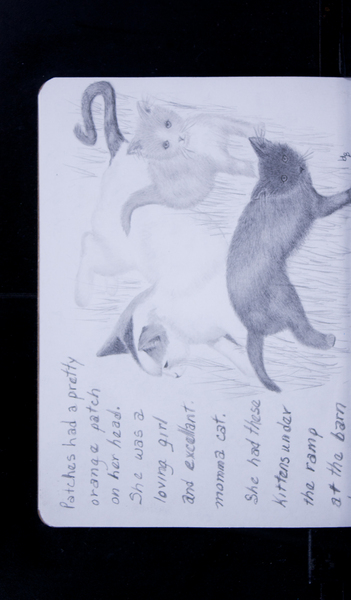 Patches had a pretty
orange patch
on her head.
She was a
loving girl
and excellant
momma cat.
She had these
kittens under
the ramp
at the barn